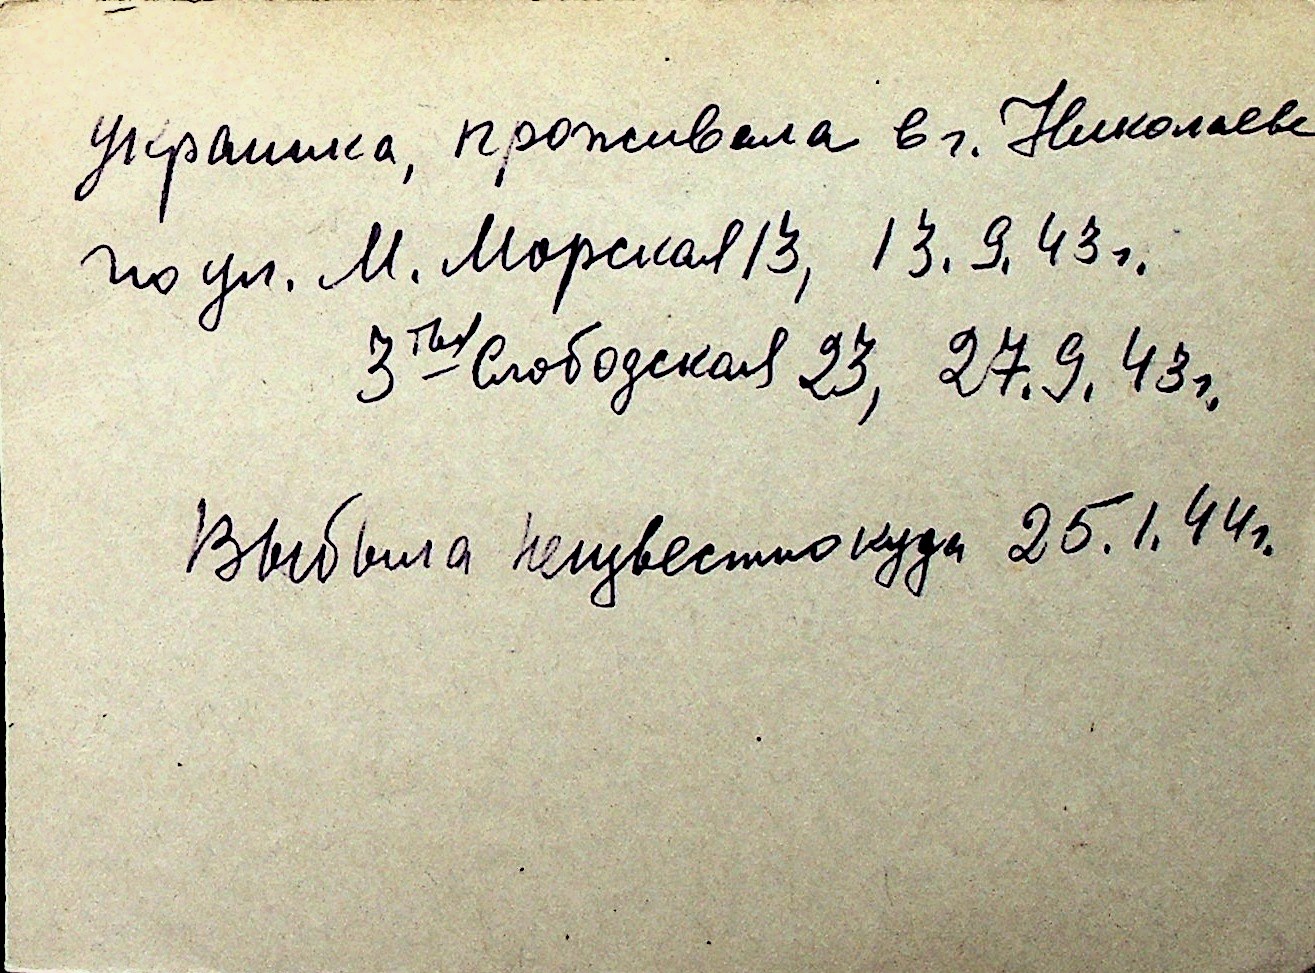 украинка, проживала в г. Николаеве
по ул. М. Морская 13, 13.9.43г.
3тья Слободская 23, 27.9.43г.
Выбыла неизвестно куда 25.1.44г.